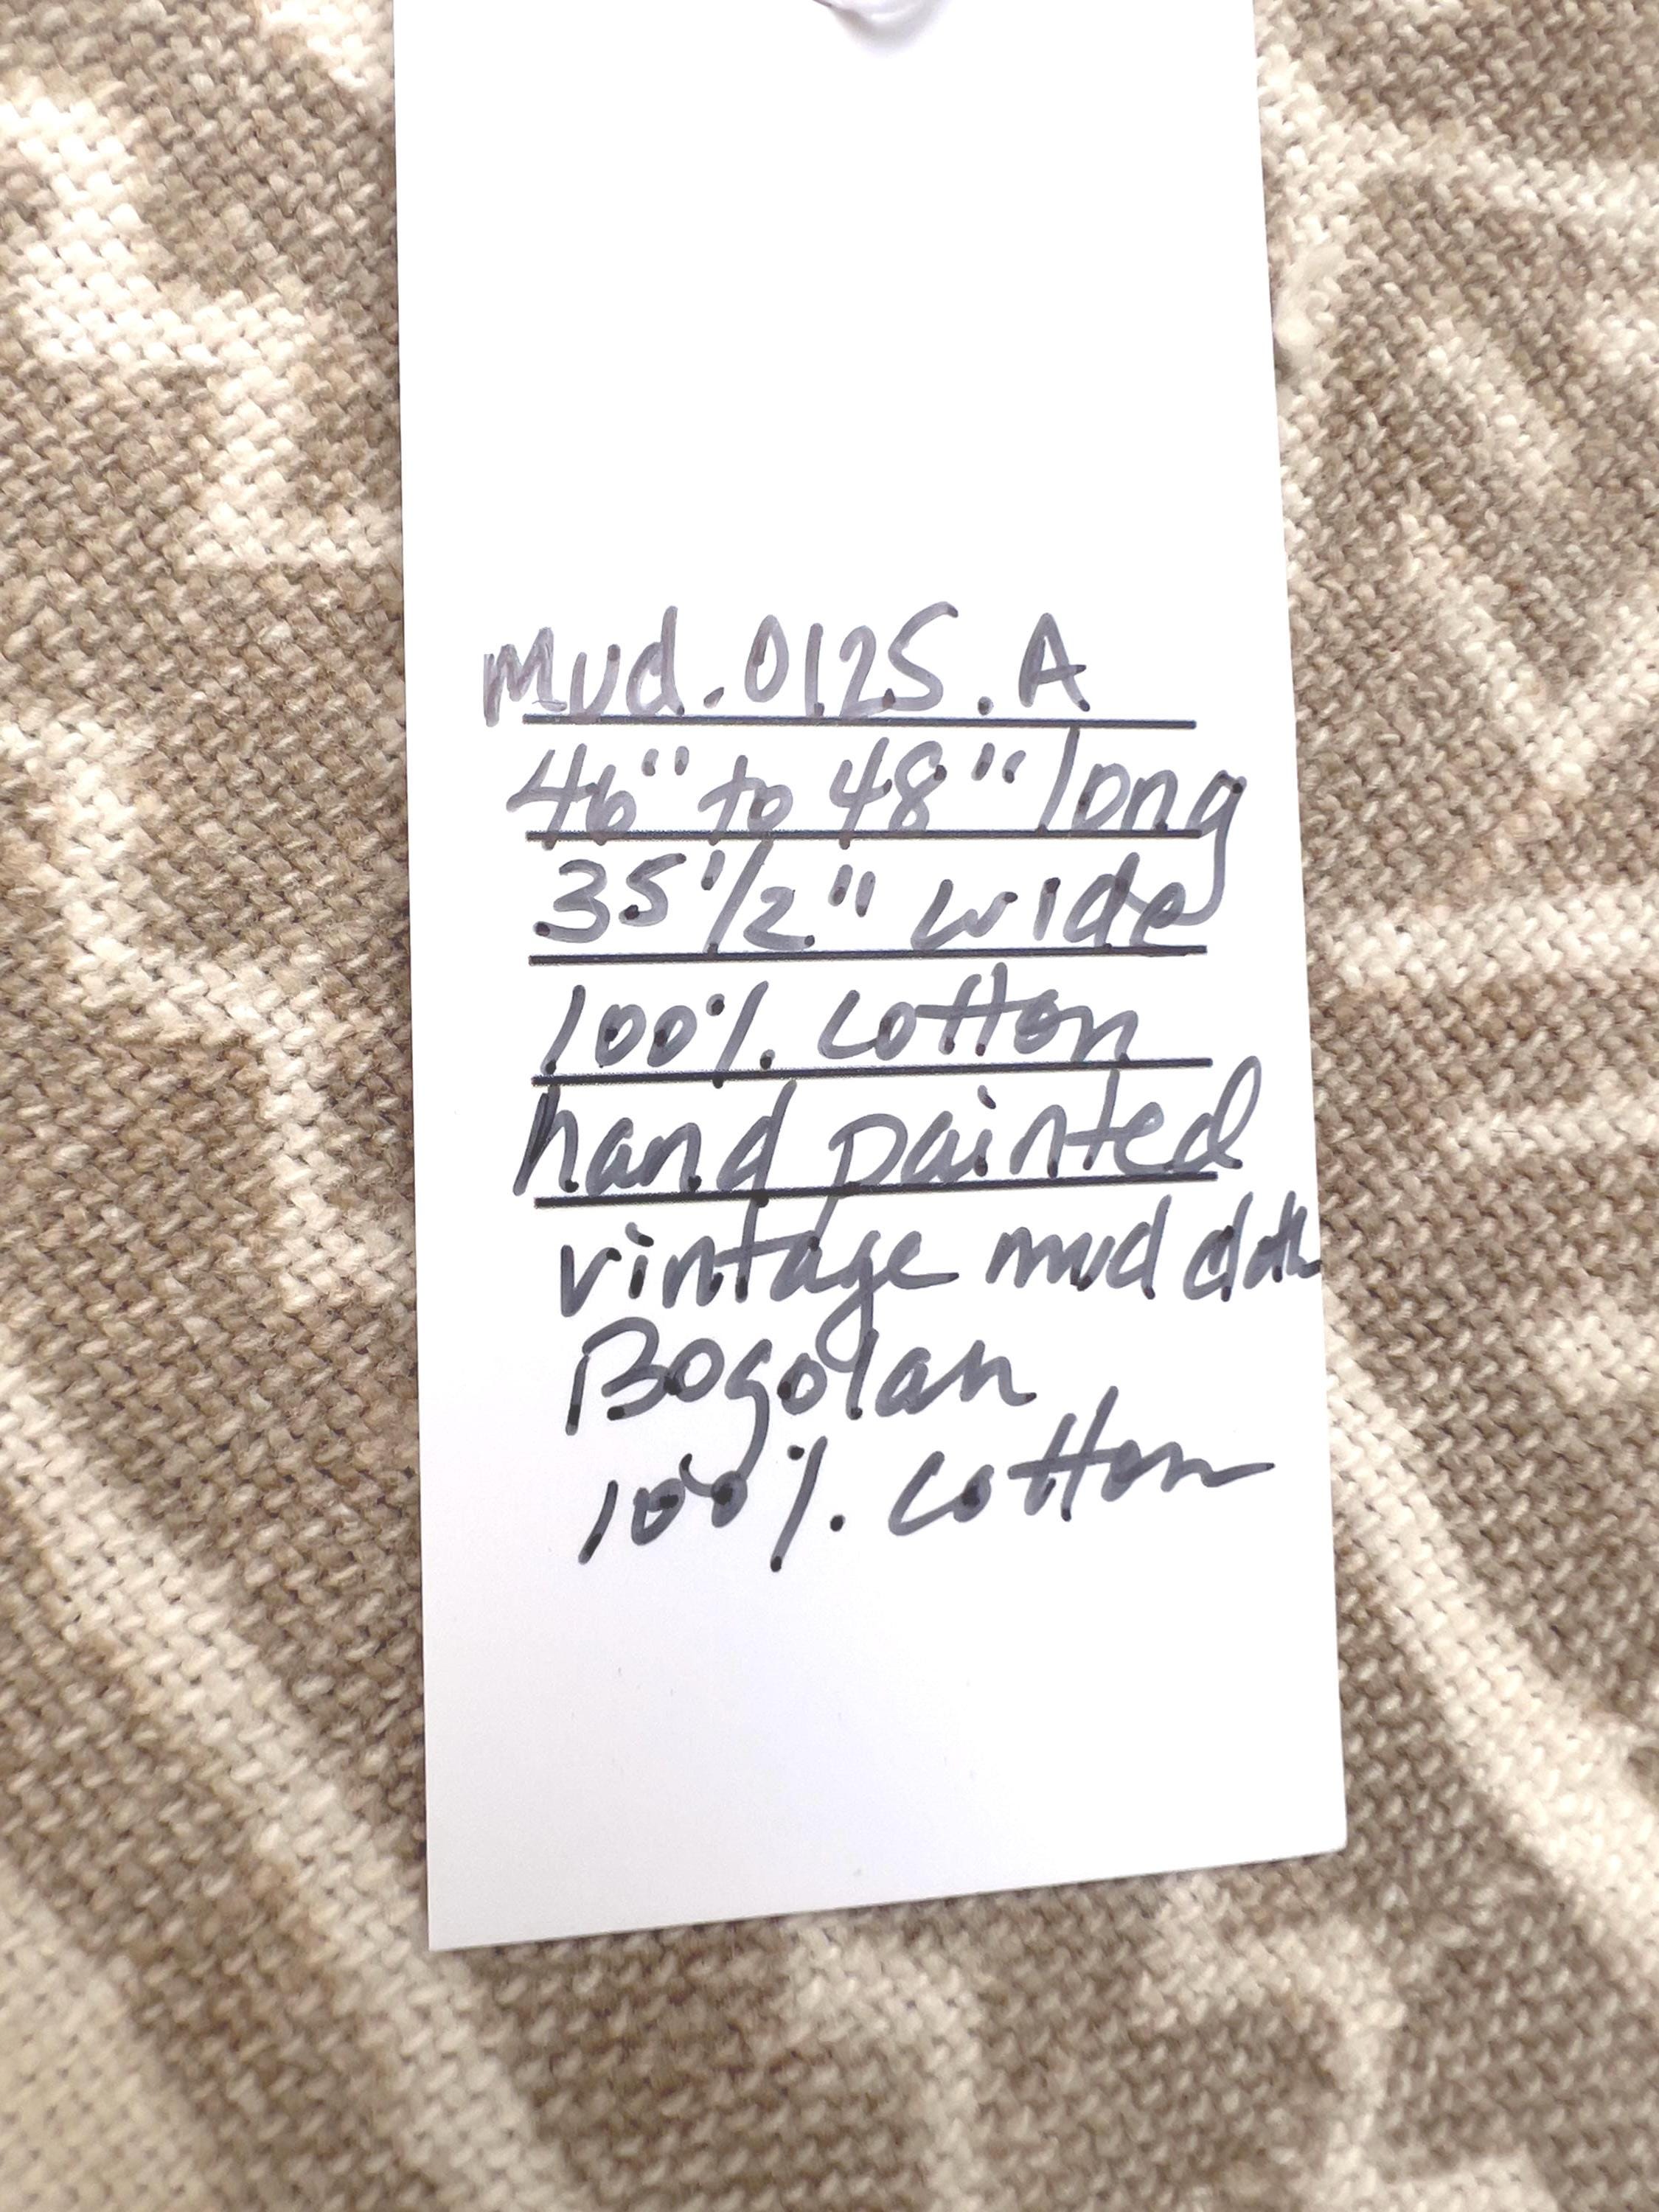 Mud.0125.A
46" to 48" long
35 1/2" wide
100% cotton
hand painted
vintage mud cloth
Bogolan
100% cotton